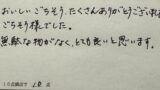 おいしいごちそう、たくさんありがとうございました
ごちそう様でした。
無駄な物がなく、とても良いと思います。
10点満点で 10 点